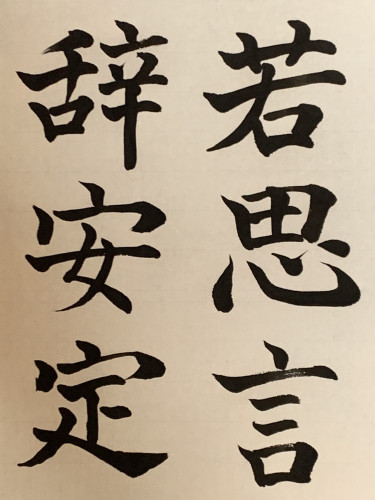 若思言
辞安定